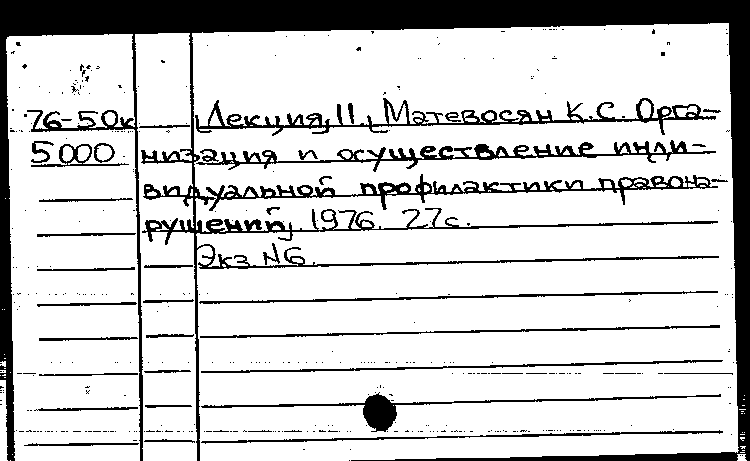 76-50к Лекция, 11. Матевосян К.С. Орга-
5000 низация и осуществление инди-
видуальной профилактики правона-
рушений, 1976. 27с.
Экз. N6.